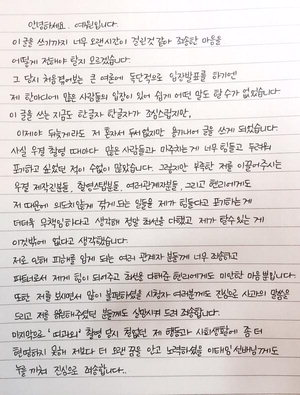 안녕하세요. 예원입니다.
이 글을 쓰기까지 너무 오랜시간이 걸린것 같아 죄송한 마음을
어떻게 전해야 할지 모르겠습니다.
그 당시 처음겪어보는 큰 여론에 독단적으로 입장발표를 하기엔
제 한마디에 많은 사람들의 입장이 있어 쉽게 어떤 말도 할 수가 없었습니다.
이 글을 쓰는 지금도 한글자 한글자가 조심스럽지만,
이제야 뒤늦게라도 저 혼자서 두서없지만 용기내어 글을 쓰게 되었습니다.
사실 우결 촬영 때마다 많은 사람들과 마주치는게 너무 힘들고 두려워
포기하고 싶었던 적이 수없이 많았습니다. 그렇지만 부족한 저를 이끌어주시는
우결 제작진분들, 촬영스탭분들, 여러관계자분들, 그리고 헨리에게도
저 때문에 의도치않게 겪게 되는 일들을 제가 힘들다고 포기하는게
더더욱 무책임하다고 생각해 정말 최선을 다했고 제가 할수있는 게
이것밖에 없다고 생각했습니다.
저로 인해 피해를 입게 되는 여러 관계자 분들께 너무 죄송하고
파트너로서 제게 힘이 되어주고 최선을 다해준 헨리에게도 미안한 마음 뿐입니다.
또한 저를 보시면서 많이 불편하셨을 시청자 여러분께도 진심으로 사과의 말씀을
드리고 저를 응원해주셨던 분들께도 실망시켜 드려 죄송합니다.
마지막으로 '띠과외' 촬영 당시 철없던 제 행동과 사회생활에 좀 더
현명하지 못해 저보다 더 오랜 꿈을 안고 노력하셨을 이태임 선배님께도
누를 끼쳐 진심으로 죄송합니다.